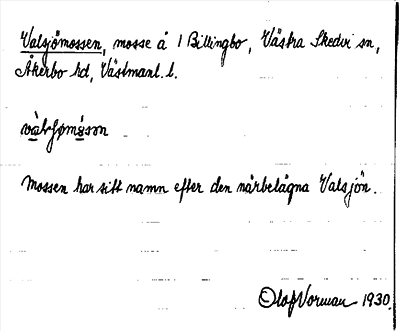 Valsjömossen, mosse å 1 Billingbo, Västra Skedvi sn,
Åkerbo hd, Västmanl. l.
Mossen har sitt namn efter den närbelägna Valsjön.
Olof Vorman 1930.